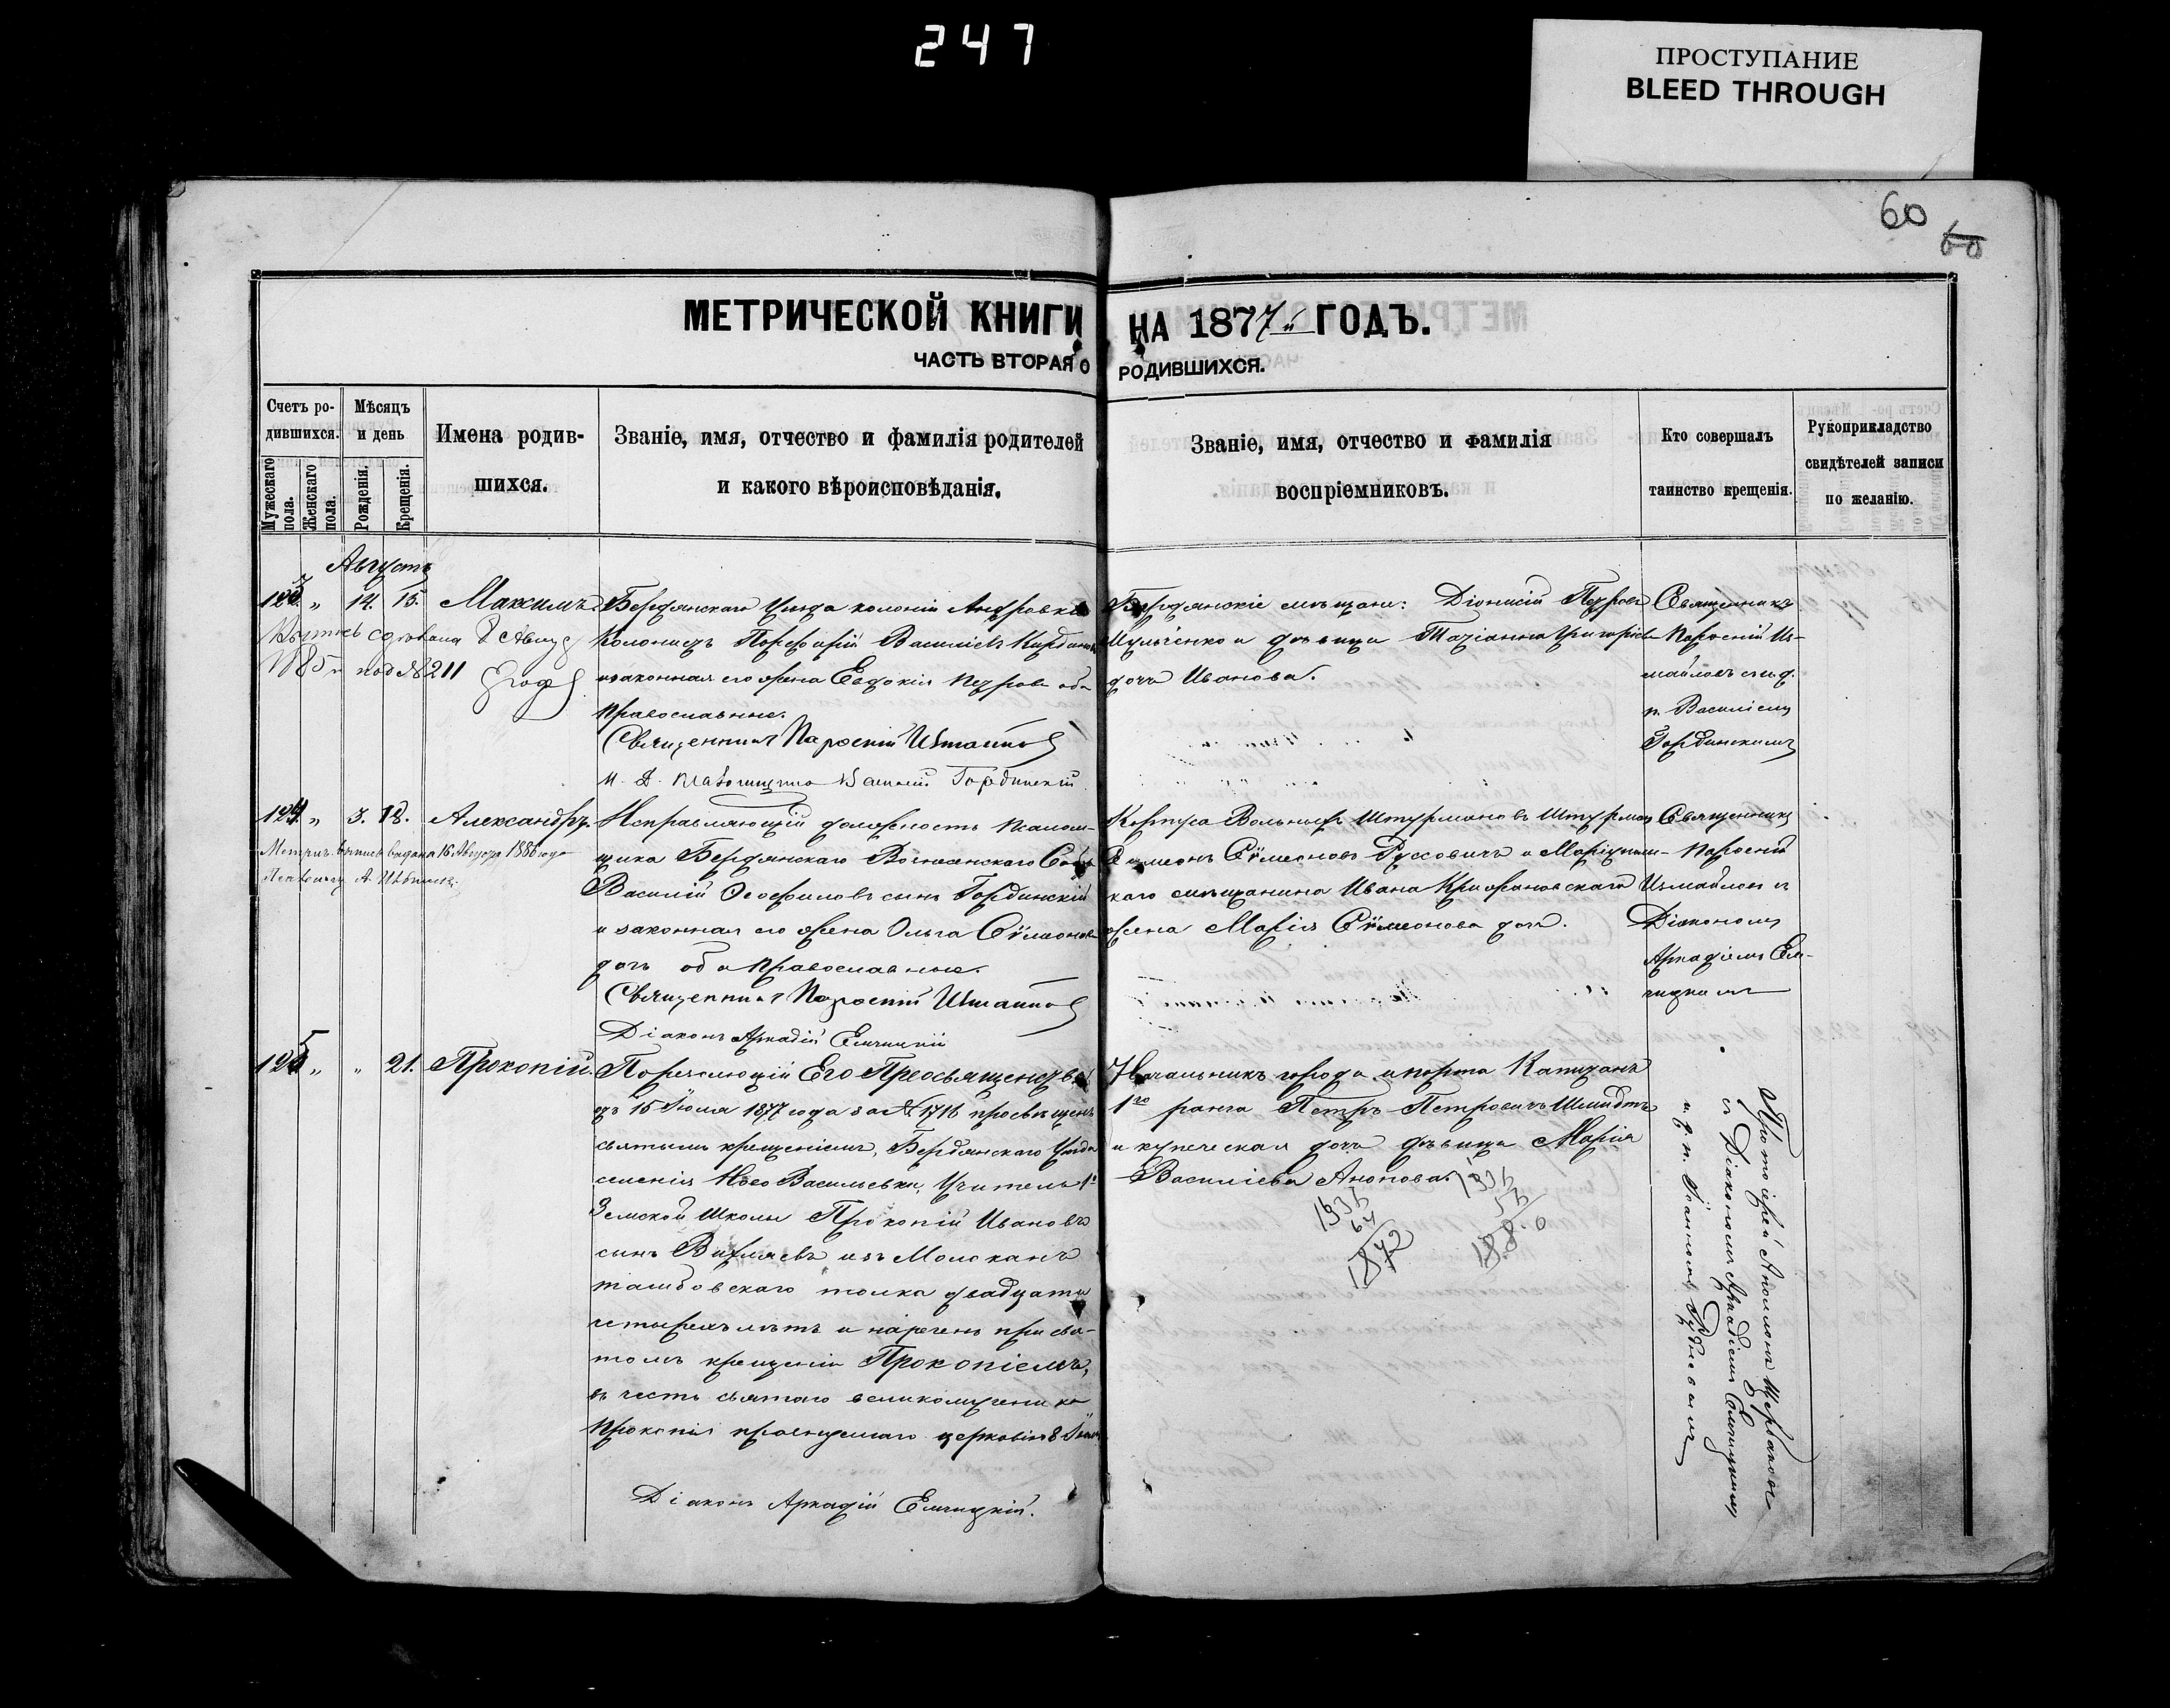 247
ПРОСТУПАНИЕ
BLEED THROUGH
60
60
МЕТРИЧЕСКОЙ КНИГИ НА 1877й ГОДЪ.
ЧАСТЬ ВТОРАЯ О РОДИВШИХСЯ.
Счетъ ро-
дившихся.
Мужескаго пола.
Женскаго пола.
Мѣсяцъ
и день
Рожденія.
Крещенія.
Имена родив-
шихся.
Званіе, имя, отчество и фамилія родителей
и какого вѣроисповѣданія.
Званіе, имя, отчество и фамилія
воспріемниковъ.
Кто совершалъ
таинство крещенія.
Рукоприкладство
свидѣтелей записи
по желанію.
Августъ
123 „ 14. 15. Максимъ.
под № 211
Бердянскаго Уѣзда колоніи
Колонистъ Порфирій Василіевъ
и законная его жена Евдокія Петрова оба
Православные.
Священникъ Паросскій Измайловъ
Василій Гординскій
Бердянскіе мѣщане: Діонисій Петровъ
и дѣвица Татіанна Григоріева
дочь Иванова.
Священникъ
Паросскій Из-
майловъ съ и. д.
п. Василіемъ
Гординскимъ
124 „ 3. 18. Александръ.
Метрич. выпись выдана 16 Августа 1886 года
Исправляющій должность Псалом-
щика Бердянскаго Вознесенскаго Собора
Василій Ѳеофиловъ сынъ Гординскій
и законная его жена Ольга Сѵмеонова
дочь оба Православные.
Священникъ Паросскій Измайловъ
Діаконъ Аркадій Емчицкій
Корпуса Вольныхъ Штурмановъ Штурманъ
Сѵмеонъ Сѵмеоновъ Руссовичъ и Маріуполь-
каго мѣщанина Ивана Крижановскаго
жена Марія Сѵмеонова дочь.
Священникъ
Паросскій
Измайловъ съ
Діакономъ
Аркадіемъ Ем-
чицкимъ
125 „ „ 21. Прокопій.
Его Преосвященства
отъ 15 Іюля 1877 года за № 1716 просвѣщенъ
святымъ крещеніемъ, Бердянскаго Уѣзда
селенія Ново Васильевки, Учитель 1й
Земской Школы Прокопій Ивановъ
сынъ изъ Молоканъ
тамбовскаго толка двадцати
четырехъ лѣтъ и нареченъ при свя-
томъ крещеніи Прокопіемъ,
въ честь святаго великомученика
Прокопія празднуемаго церковію 8 Іюля
Діаконъ Аркадій Емчицкій.
Начальникъ города и порта Капитанъ
1го ранга Петръ Петровичъ Шмидтъ
и купеческая дочь дѣвица Марія
Василіева
1936
64
1872
1936
1880
Протоіерей Аполлонъ Щербаковъ
съ Діакономъ Аркадіемъ Емчицкимъ
и. д. п. Іоанномъ